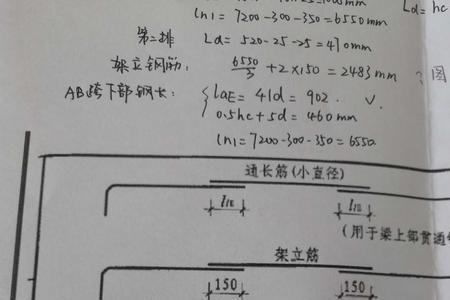 ln1 = 7200-300-350 = 6550mm
Ld = hc
第二排 Ld = 520-25-25 = 470mm
架立钢筋: 6550/3 + 2×150 = 2483mm ? 图
AB跨下部钢长: { LaE = 41d = 902. √.
0.5hc+5d = 460mm
ln1 = 7200-300-350 = 6550
通长筋(小直径)
llE llE
(用于梁上部贯通
架立筋
150 150